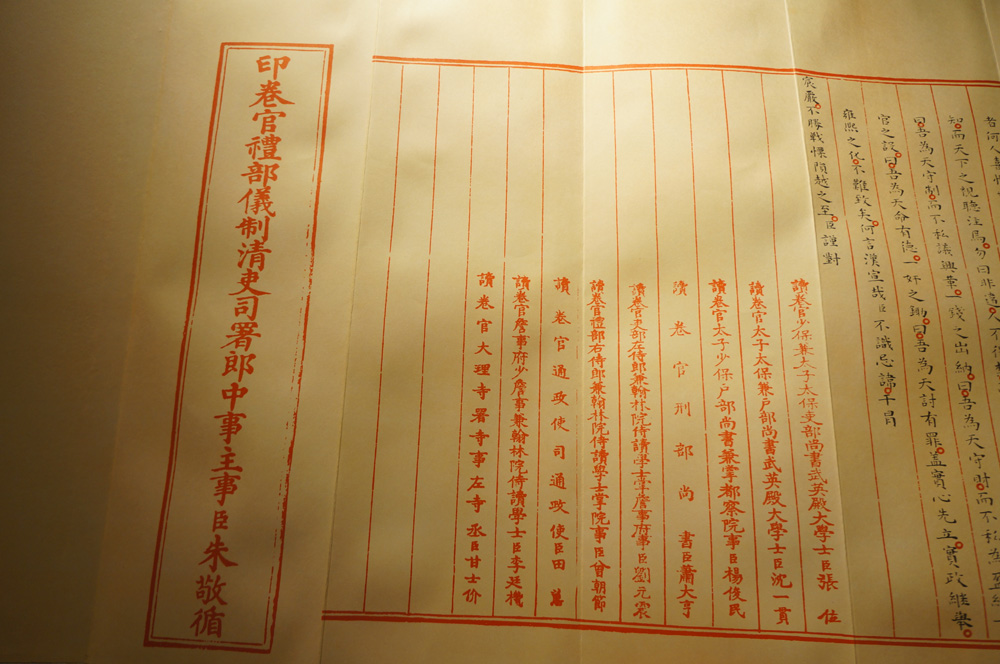 知而天下之視聽注焉勿曰非違人不得
曰吾為天守制而不私議興革一錢之出納曰吾為天守財而不私為盈縮一
官之設曰吾為天命有德一奸之鋤曰吾為天討有罪蓋實心先立實政繼舉
雍熙之化不難致矣何言漢宣哉臣不識忌諱干冒
宸嚴不勝戰慄隕越之至臣謹對
讀卷官少保兼太子太保吏部尚書武英殿大學士臣張位
讀卷官太子太保兼戶部尚書武英殿大學士臣沈一貫
讀卷官太子少保戶部尚書兼掌都察院事臣楊俊民
讀卷官刑部尚書臣蕭大亨
讀卷官吏部左侍郎兼翰林院侍讀學士掌詹事府事臣劉元震
讀卷官禮部右侍郎兼翰林院侍讀學士掌院事臣曾朝節
讀卷官通政使司通政使臣田蕙
讀卷官詹事府少詹事兼翰林院侍讀學士臣李廷機
讀卷官大理寺署寺事左寺丞臣甘士价
印卷官禮部儀制清吏司署郎中事主事臣朱敬循